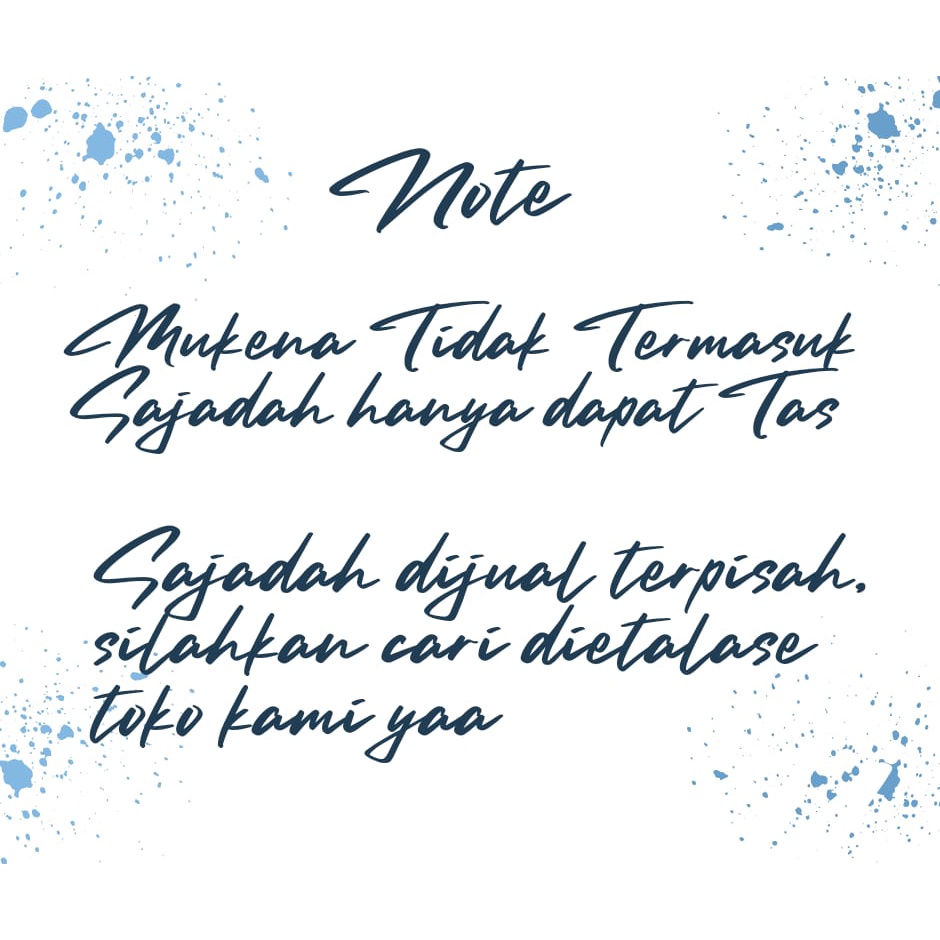 Note
Mukena Tidak Termasuk
Sajadah hanya dapat Tas
Sajadah dijual terpisah,
silahkan cari dietalase
toko kami yaa